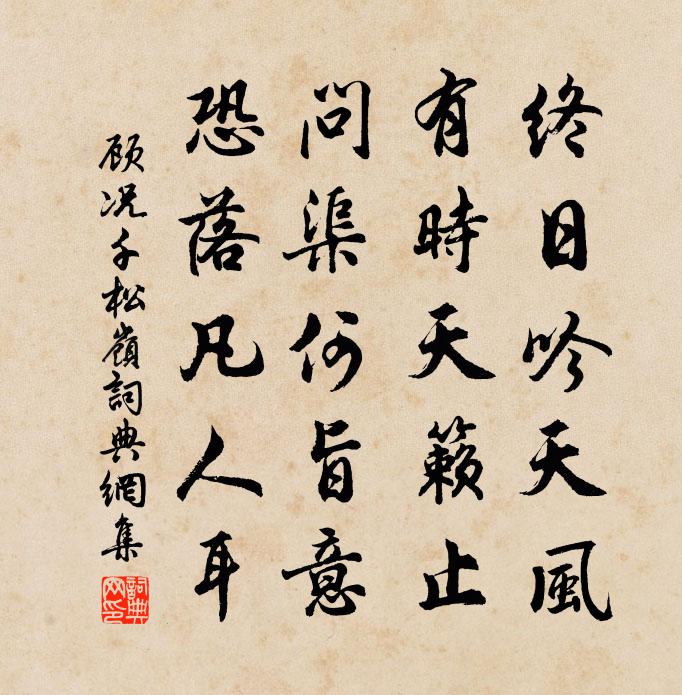 終日吟天風
有時天籟止
問渠何旨意
恐落凡人耳
顧况千松嶺詞典網集
詞典網印